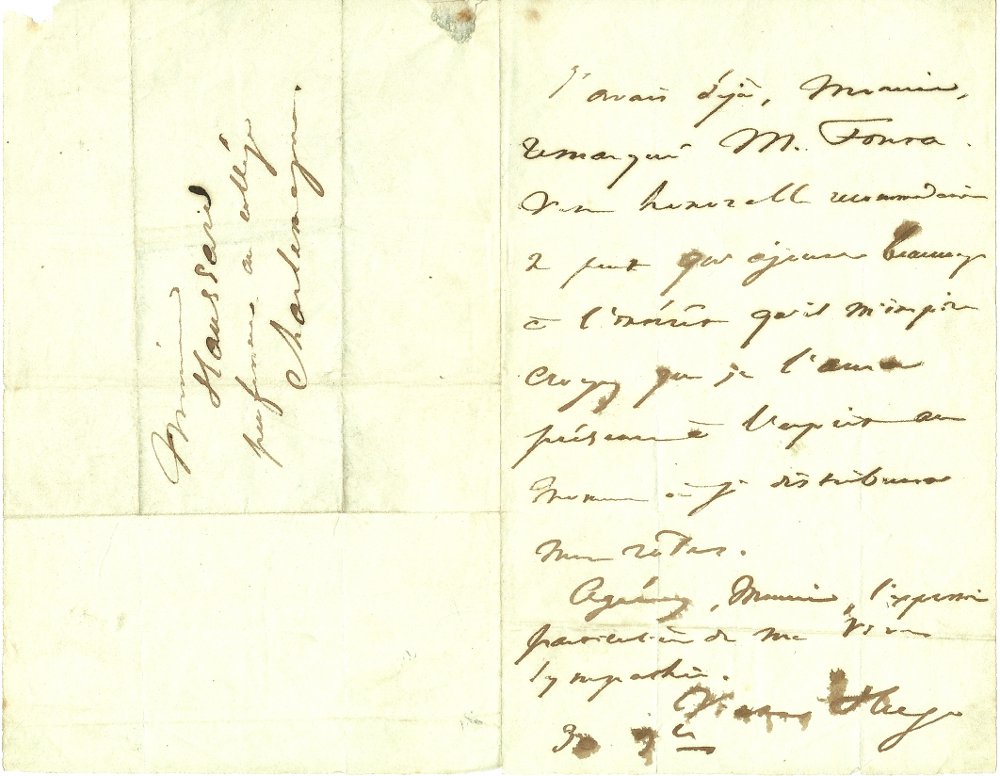 Monsieur
Haussard
professeur au collége
Charlemagne.
J'avais déjà, Monsieur,
remarqué M. Fonta.
Votre honorable recommandation
ne peut qu'ajouter beaucoup
à l'intérêt qu'il m'inspire
croyez que je l'aurai
présent à l'esprit au
moment où je distribuerai
mes rôles.
Agréez, Monsieur, l'expression
particulière de ma vive
sympathie.
Victor Hugo
30